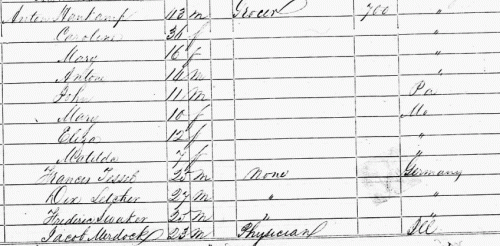 Anton 43 m Grocer 700 "
Caroline 36 f "
Mary 16 f "
Anton 14 m "
John 11 m Pa
Mary 10 f Mo
Eliza 12 f "
Matilda 7 f "
Frances 25 m None Germany
27 m " "
Frederic 25 m " "
Jacob Murdock 23 m Physician Ill